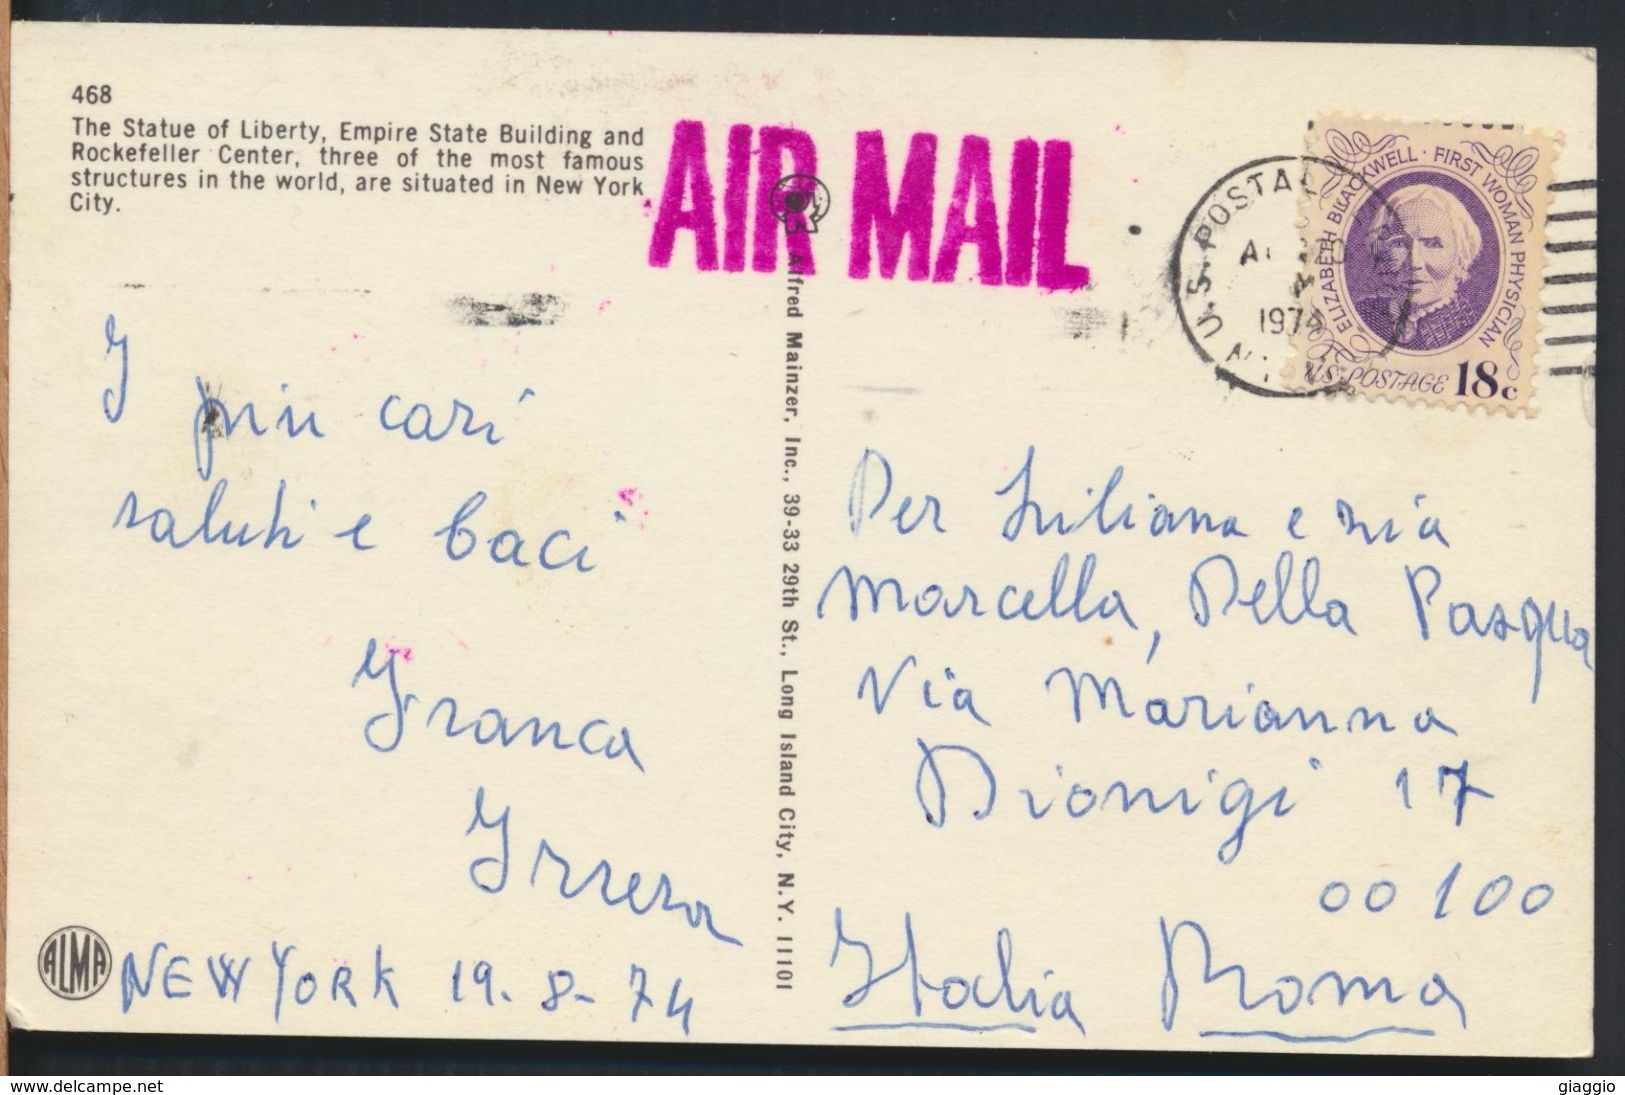 468
The Statue of Liberty, Empire State Building and
Rockefeller Center, three of the most famous
structures in the world, are situated in New York
City.
AIR MAIL
U.S. POSTAL
1974
ELIZABETH BLACKWELL · FIRST WOMAN PHYSICIAN
U.S. POSTAGE 18c
I
più cari
saluti e baci
Franca
Irrera
NEW YORK 19-8-74
ALMA
Alfred Mainzer, Inc., 39-33 29th St., Long Island City, N.Y. 11101
Per Liliana e zia
Marcella, Della Pasqua
Via Marianna
Dionigi 17
00100
Italia Roma
www.delcampe.net
giaggio